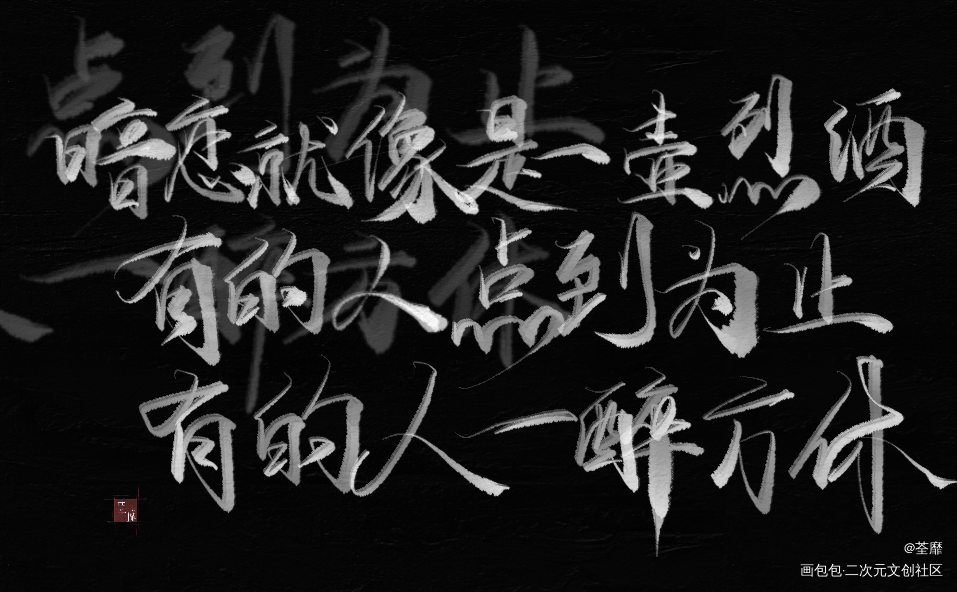 点到为止
暗恋就像是一壶烈酒
有的人点到为止
一醉方休
有的人一醉方休
@荃靡
画包包·二次元文创社区